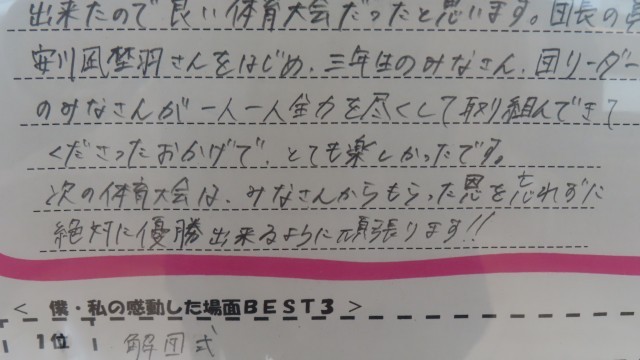 出来たので良い体育大会だったと思います。団長の
安川凪埜羽さんをはじめ、三年生のみなさん、団リーダー
のみなさんが一人一人全力を尽くして取り組んできて
くださったおかげで、とても楽しかったです。
次の体育大会は、みなさんからもらった恩を忘れずに
絶対に優勝出来るように頑張ります!!
< 僕・私の感動した場面BEST3 >
1位 解団式